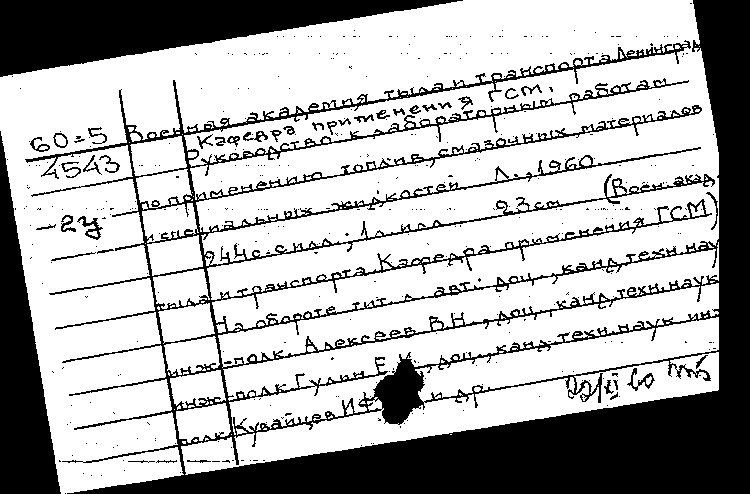 60=5
4543
-2ч
Военная академия тыла и транспорта Ленинград
Кафедра применения ГСМ.
Руководство к лабораторным работам
по применению топлив, смазочных материалов
и специальных жидкостей Л., 1960
244с. с илл.; 1л. илл. 23см (Воен. акад.
тыла и транспорта. Кафедра применения ГСМ)
На обороте тит. л. авт.: доц., канд. техн. нау
инж-полк. Алексеев В.Н., доц., канд. техн. наук
инж-полк Гулин Е.И., доц., канд. техн. наук инж
полк. Кувайцев И.Ф. и др.
22/XI 60